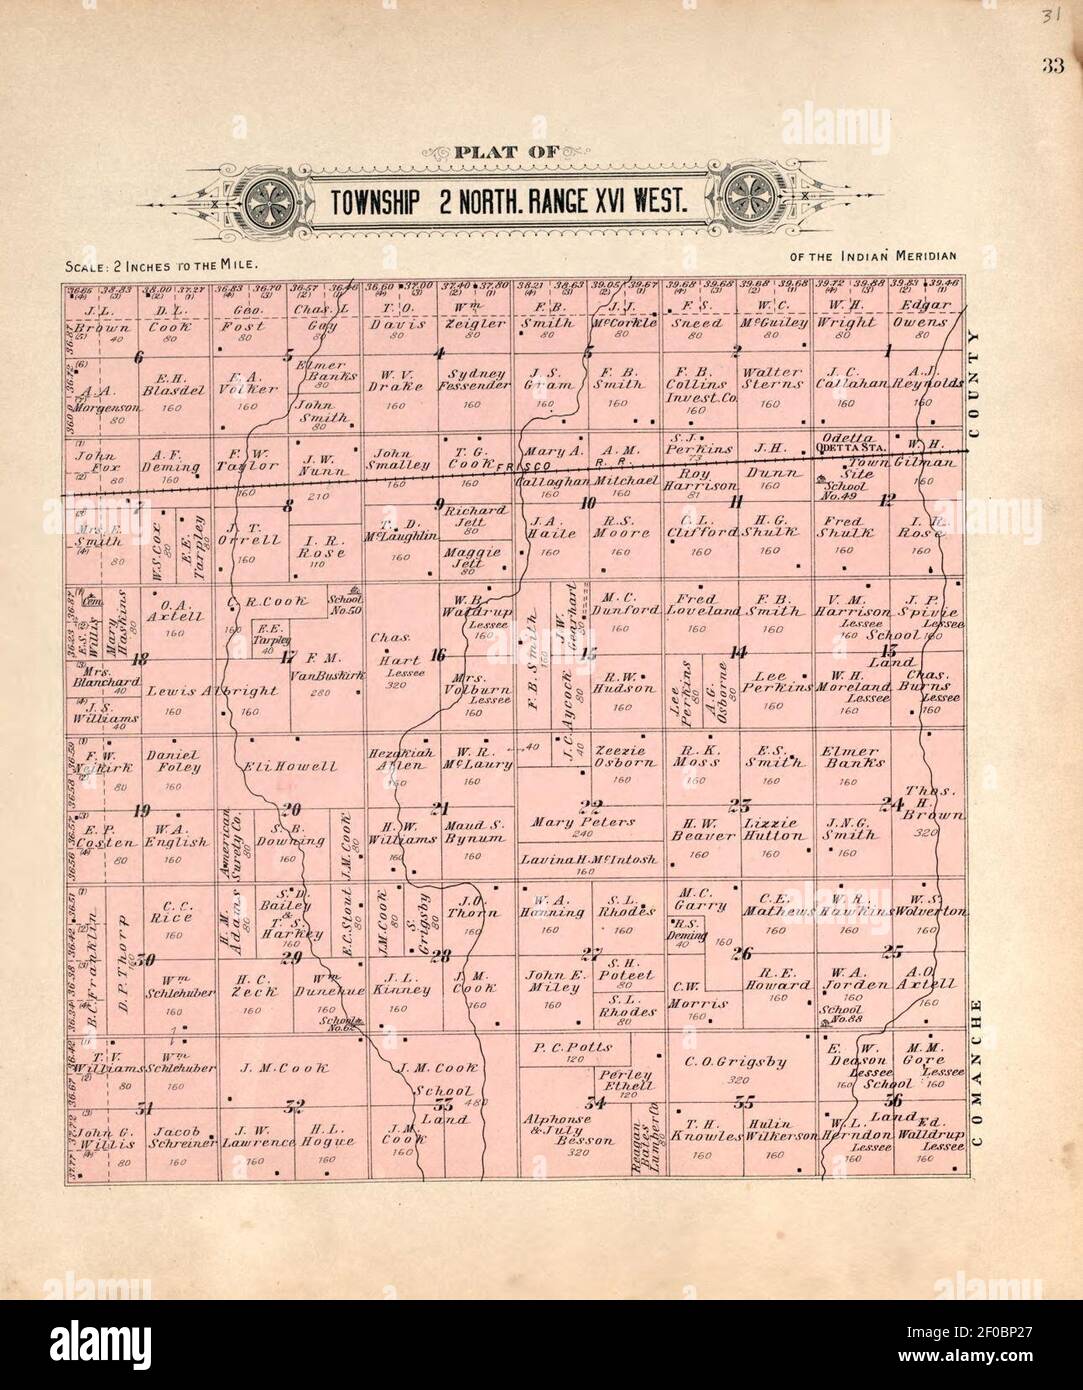 31
33
PLAT OF
TOWNSHIP 2 NORTH. RANGE XVI WEST.
SCALE: 2 INCHES TO THE MILE.
OF THE INDIAN MERIDIAN
36.65 38.83 38.00 37.27 36.83 36.70 36.57 36.46 36.60 37.00 37.40 37.80 38.21 38.63 39.05 39.67 39.68 39.68 39.68 39.68 39.72 39.88 39.83 39.46
J.L. Brown 40
D.L. Cook 80
Geo. Fost 80
Chas. L Gay 80
T.O. Davis 80
Wm Zeigler 80
F.B. Smith 80
J.J. McCorkle 80
F.S. Sneed 80
W.C. McGuiley 80
W.H. Wright 80
Edgar Owens 80
6 5 4 3 2 1
A.A. Morgenson 80
E.H. Blasdel 160
F.A. Volker 160
Elmer Banks 80
John Smith 80
W.V. Drake 160
Sydney Fessender 160
J.S. Gram 160
F.B. Smith 160
F.B. Collins Invest. Co. 160
Walter Sterns 160
J.C. Callahan 160
A.J. Reynolds 160
COUNTY
John Fox 80
A.F. Deming 160
F.W. Taylor 160
J.W. Nunn 210
John Smalley 160
T.G. Cook 160
FRISCO R.R.
Mary A. Callaghan 160
A.M. Mitchael 160
S.J. Perkins 73
Roy Harrison 81
J.H. Dunn 160
Odetta
ODETTA STA.
Town Site
School No. 49
W.H. Gilman
7 8 9 10 11 12
Mrs. E. Smith 80
W.S. Cox 80
E.E. Tarpley 80
J.T. Orrell 160
I.R. Rose 110
T.D. McLaughlin 160
Richard Jett 80
Maggie Jett 80
J.A. Haile 160
R.S. Moore 160
C.L. Clifford 160
H.G. Shulk 160
Fred Shulk 160
I.R. Rose 160
Cem.
E.S. Wills
Mary Haskins 80
O.A. Axtell 160
C.R. Cook 160
School No. 50
E.E. Tarpley 40
Chas. Hart Lessee 320
W.B. Waldrup Lessee 160
F.B. Smith 160
J.W. Gearhart 80
M.C. Dunford 160
Fred Loveland 160
F.B. Smith 160
V.M. Harrison Lessee 160
J.P. Spivie Lessee 160
School Land
18 17 16 15 14 13
Mrs. Blanchard 40
J.S. Williams 40
Lewis Albright 160 160
F.M. VanBuskirk 280
Mrs. Volburn Lessee 160
J.C. Aycock 80 40
R.W. Hudson 160
Lee Perkins 80
A.G. Osborne 80
Lee Perkins 160
W.H. Moreland Lessee 160
Chas. Burns Lessee 160
F.W. Neikirk 80
Daniel Foley 160
Eli Howell
Hezakiah Allen 160
W.R. McLaury 160
40
Zeezie Osborn 160
R.K. Moss 160
E.S. Smith 160
Elmer Banks 160
Thos. H. Brown 320
19 20 21 22 23 24
E.P. Costen 80
W.A. English 160
American Surety Co. 80
S.B. Downing 160
J.M. Cook 80
H.W. Williams 160
Maud S. Bynum 160
Mary Peters 240
Lavina H. McIntosh 160
H.W. Beaver 160
Lizzie Hutton 160
J.N.G. Smith 160
B.C. Franklin
D.P. Thorp 160
C.C. Rice 160
H.M. Adams 80
S.D. Bailey & T.S. Harkey 160
E.C. Stout 80
J.M. Cook 80
S. Grigsby 80
J.O. Thorn 160
W.A. Hanning 160
S.L. Rhodes 160
M.C. Garry 160
R.S. Deming 40
C.E. Mathews 160
W.R. Hawkins 160
W.S. Wolverton 160
30 29 28 27 26 25
Wm Schlehuber 160
H.C. Zeck 160
Wm Dunehue 160
School No. 62
J.L. Kinney 160
J.M. Cook 160
John E. Miley 160
S.H. Poteet 80
S.L. Rhodes 80
C.W. Morris 160
R.E. Howard 160
W.A. Jorden 160
School No. 88
A.O. Axtell 160
COMANCHE
T.V. Williams 80
Wm Schlehuber 160
J.M. Cook
J.M. Cook
School Land 480
P.C. Potts 120
Perley Ethell 120
C.O. Grigsby 320
E.W. Deason Lessee 160
M.M. Gore Lessee 160
School Land
31 32 33 34 35 36
John G. Willis 80
Jacob Schreiner 160
J.W. Lawrence 160
H.L. Hogue 160
J.M. Cook 160
Alphonse & July Besson 320
Reagan Bales Lumber Co 80
T.H. Knowles 160
Hulin Wilkerson 160
W.L. Herndon Lessee 160
Ed. Walldrup Lessee 160
alamy
Image ID: 2F0BP27
www.alamy.com